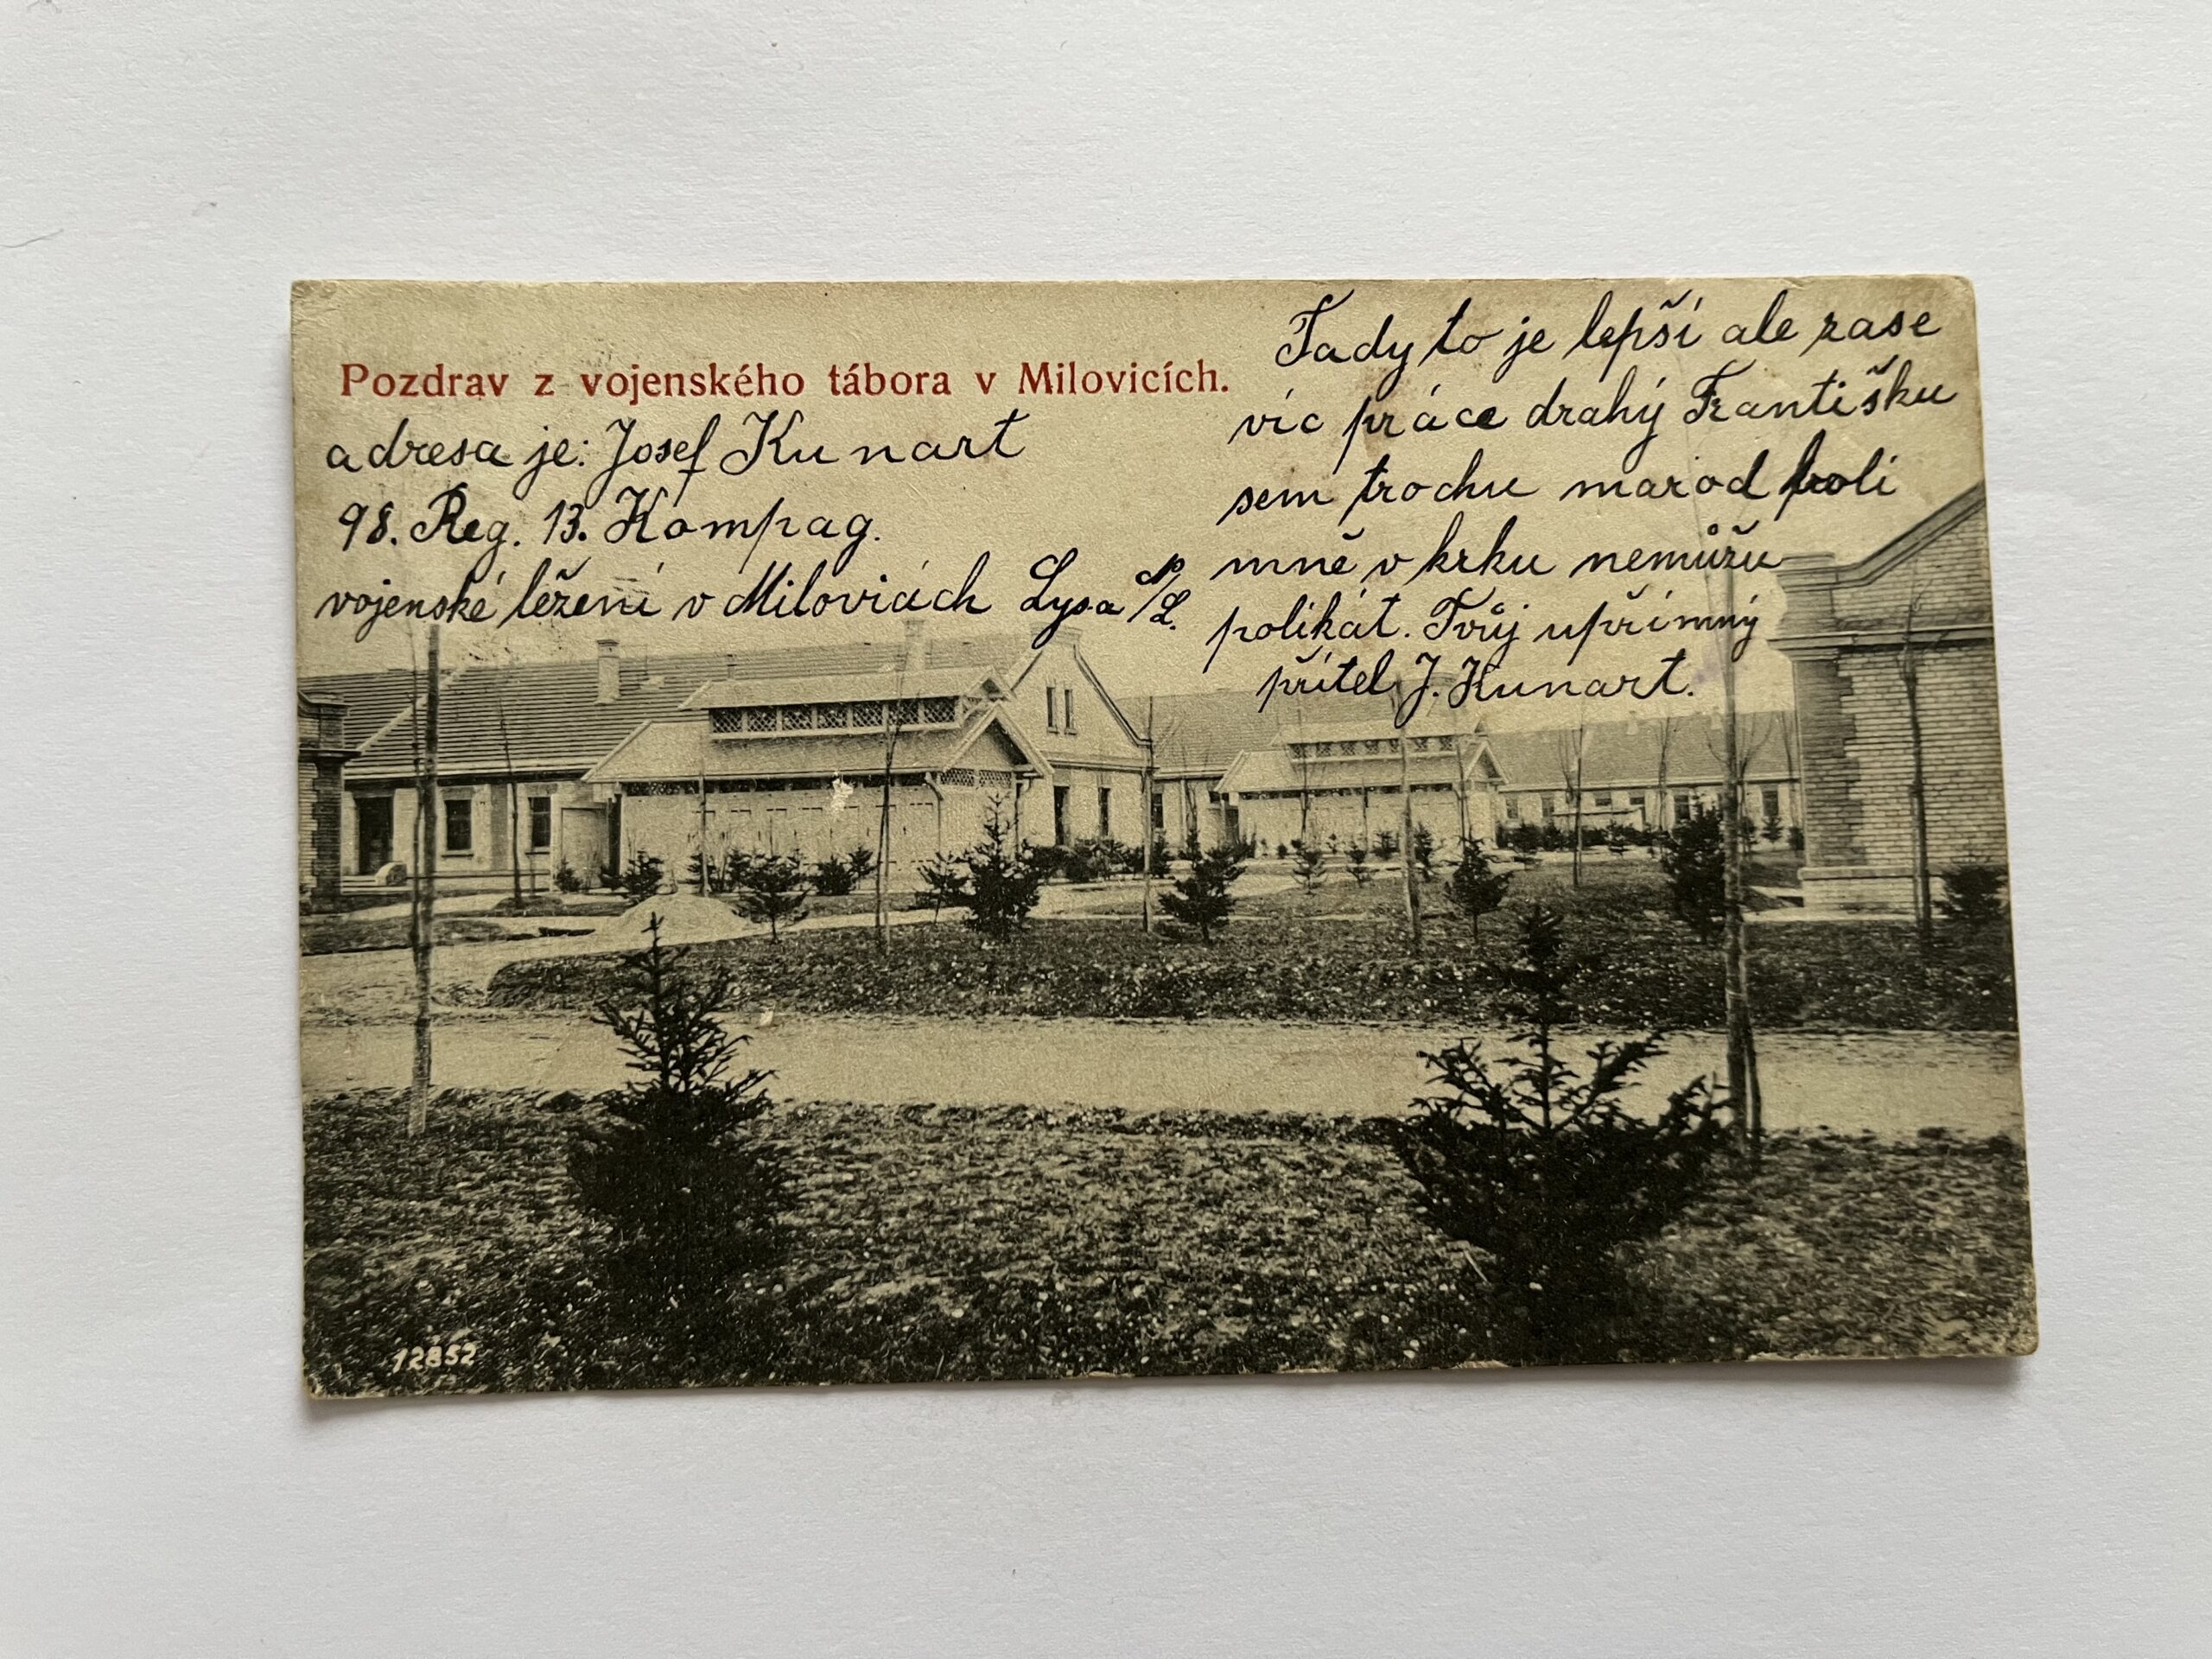 Pozdrav z vojenského tábora v Milovicích.
adresa je: Josef Kunart
98. Reg. 13. Kompag.
vojenské léžení v Milovicích Lysa n/L.
Tady to je lepší ale zase
víc práce drahý Františku
sem trochu marod bolí
mně v krku nemůžu
polikat. Tvůj upřímný
přítel J. Kunart.
12852